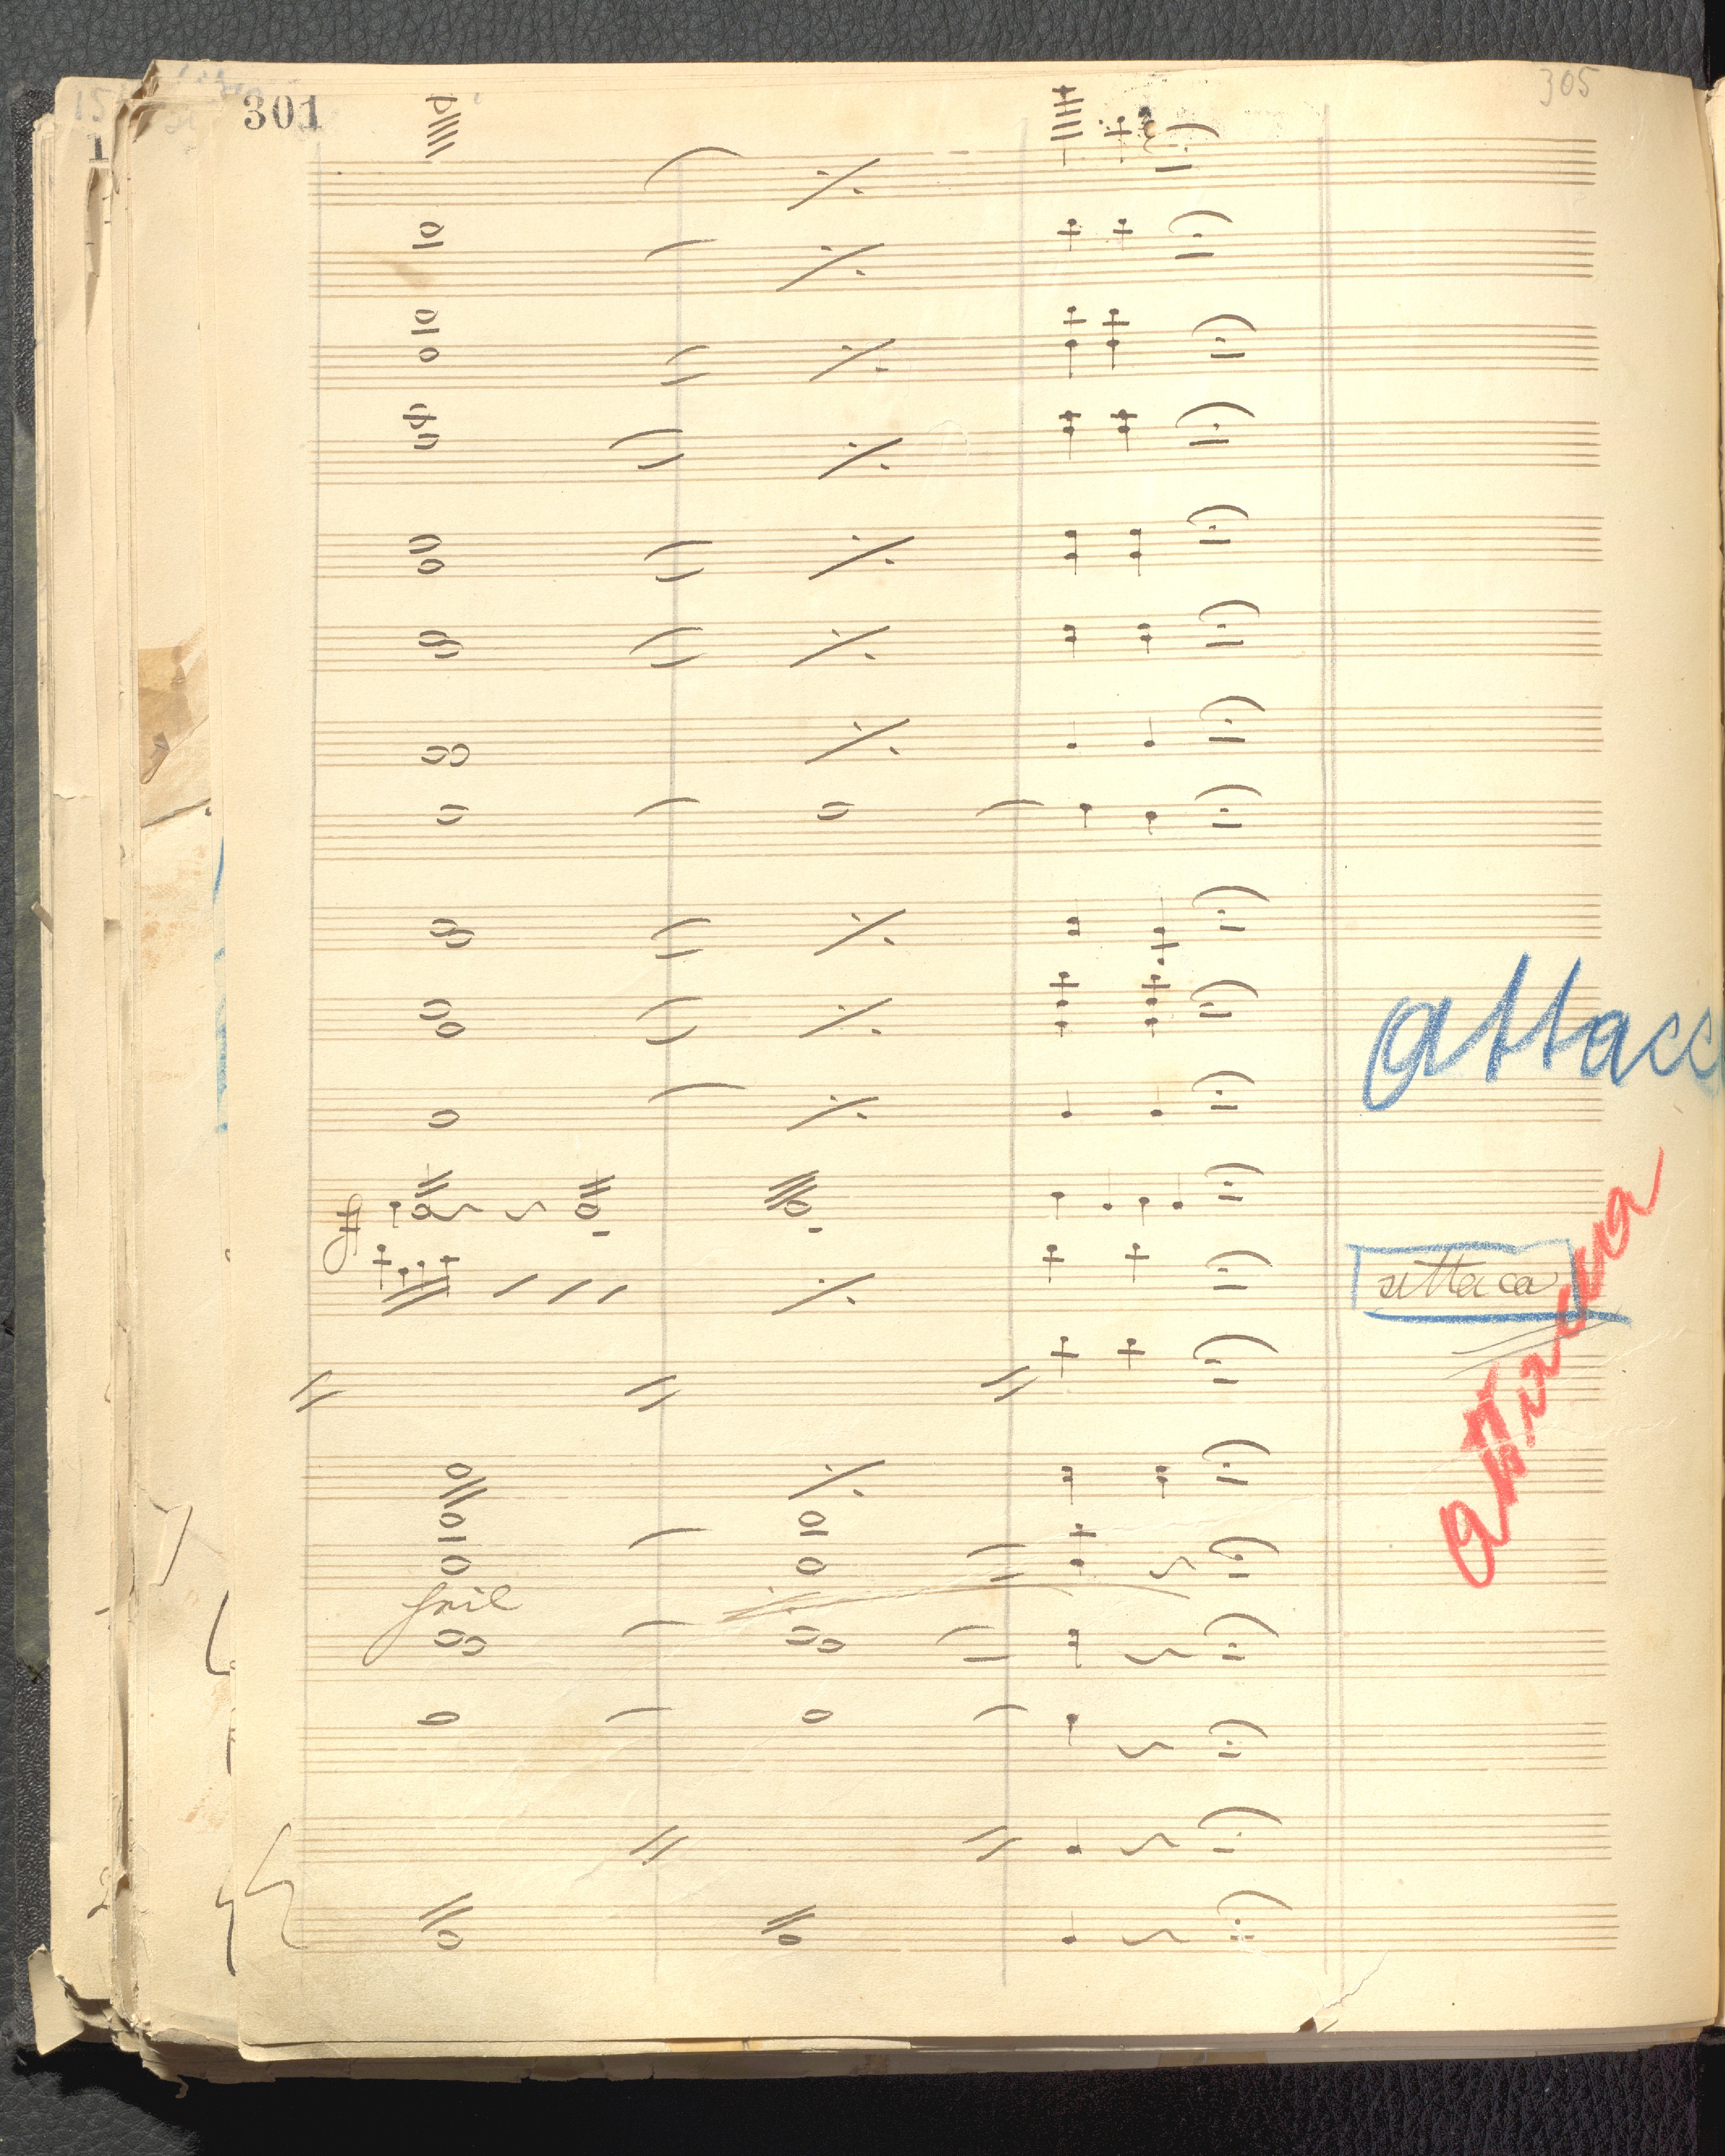 301
305
attacc
attaca
attacca